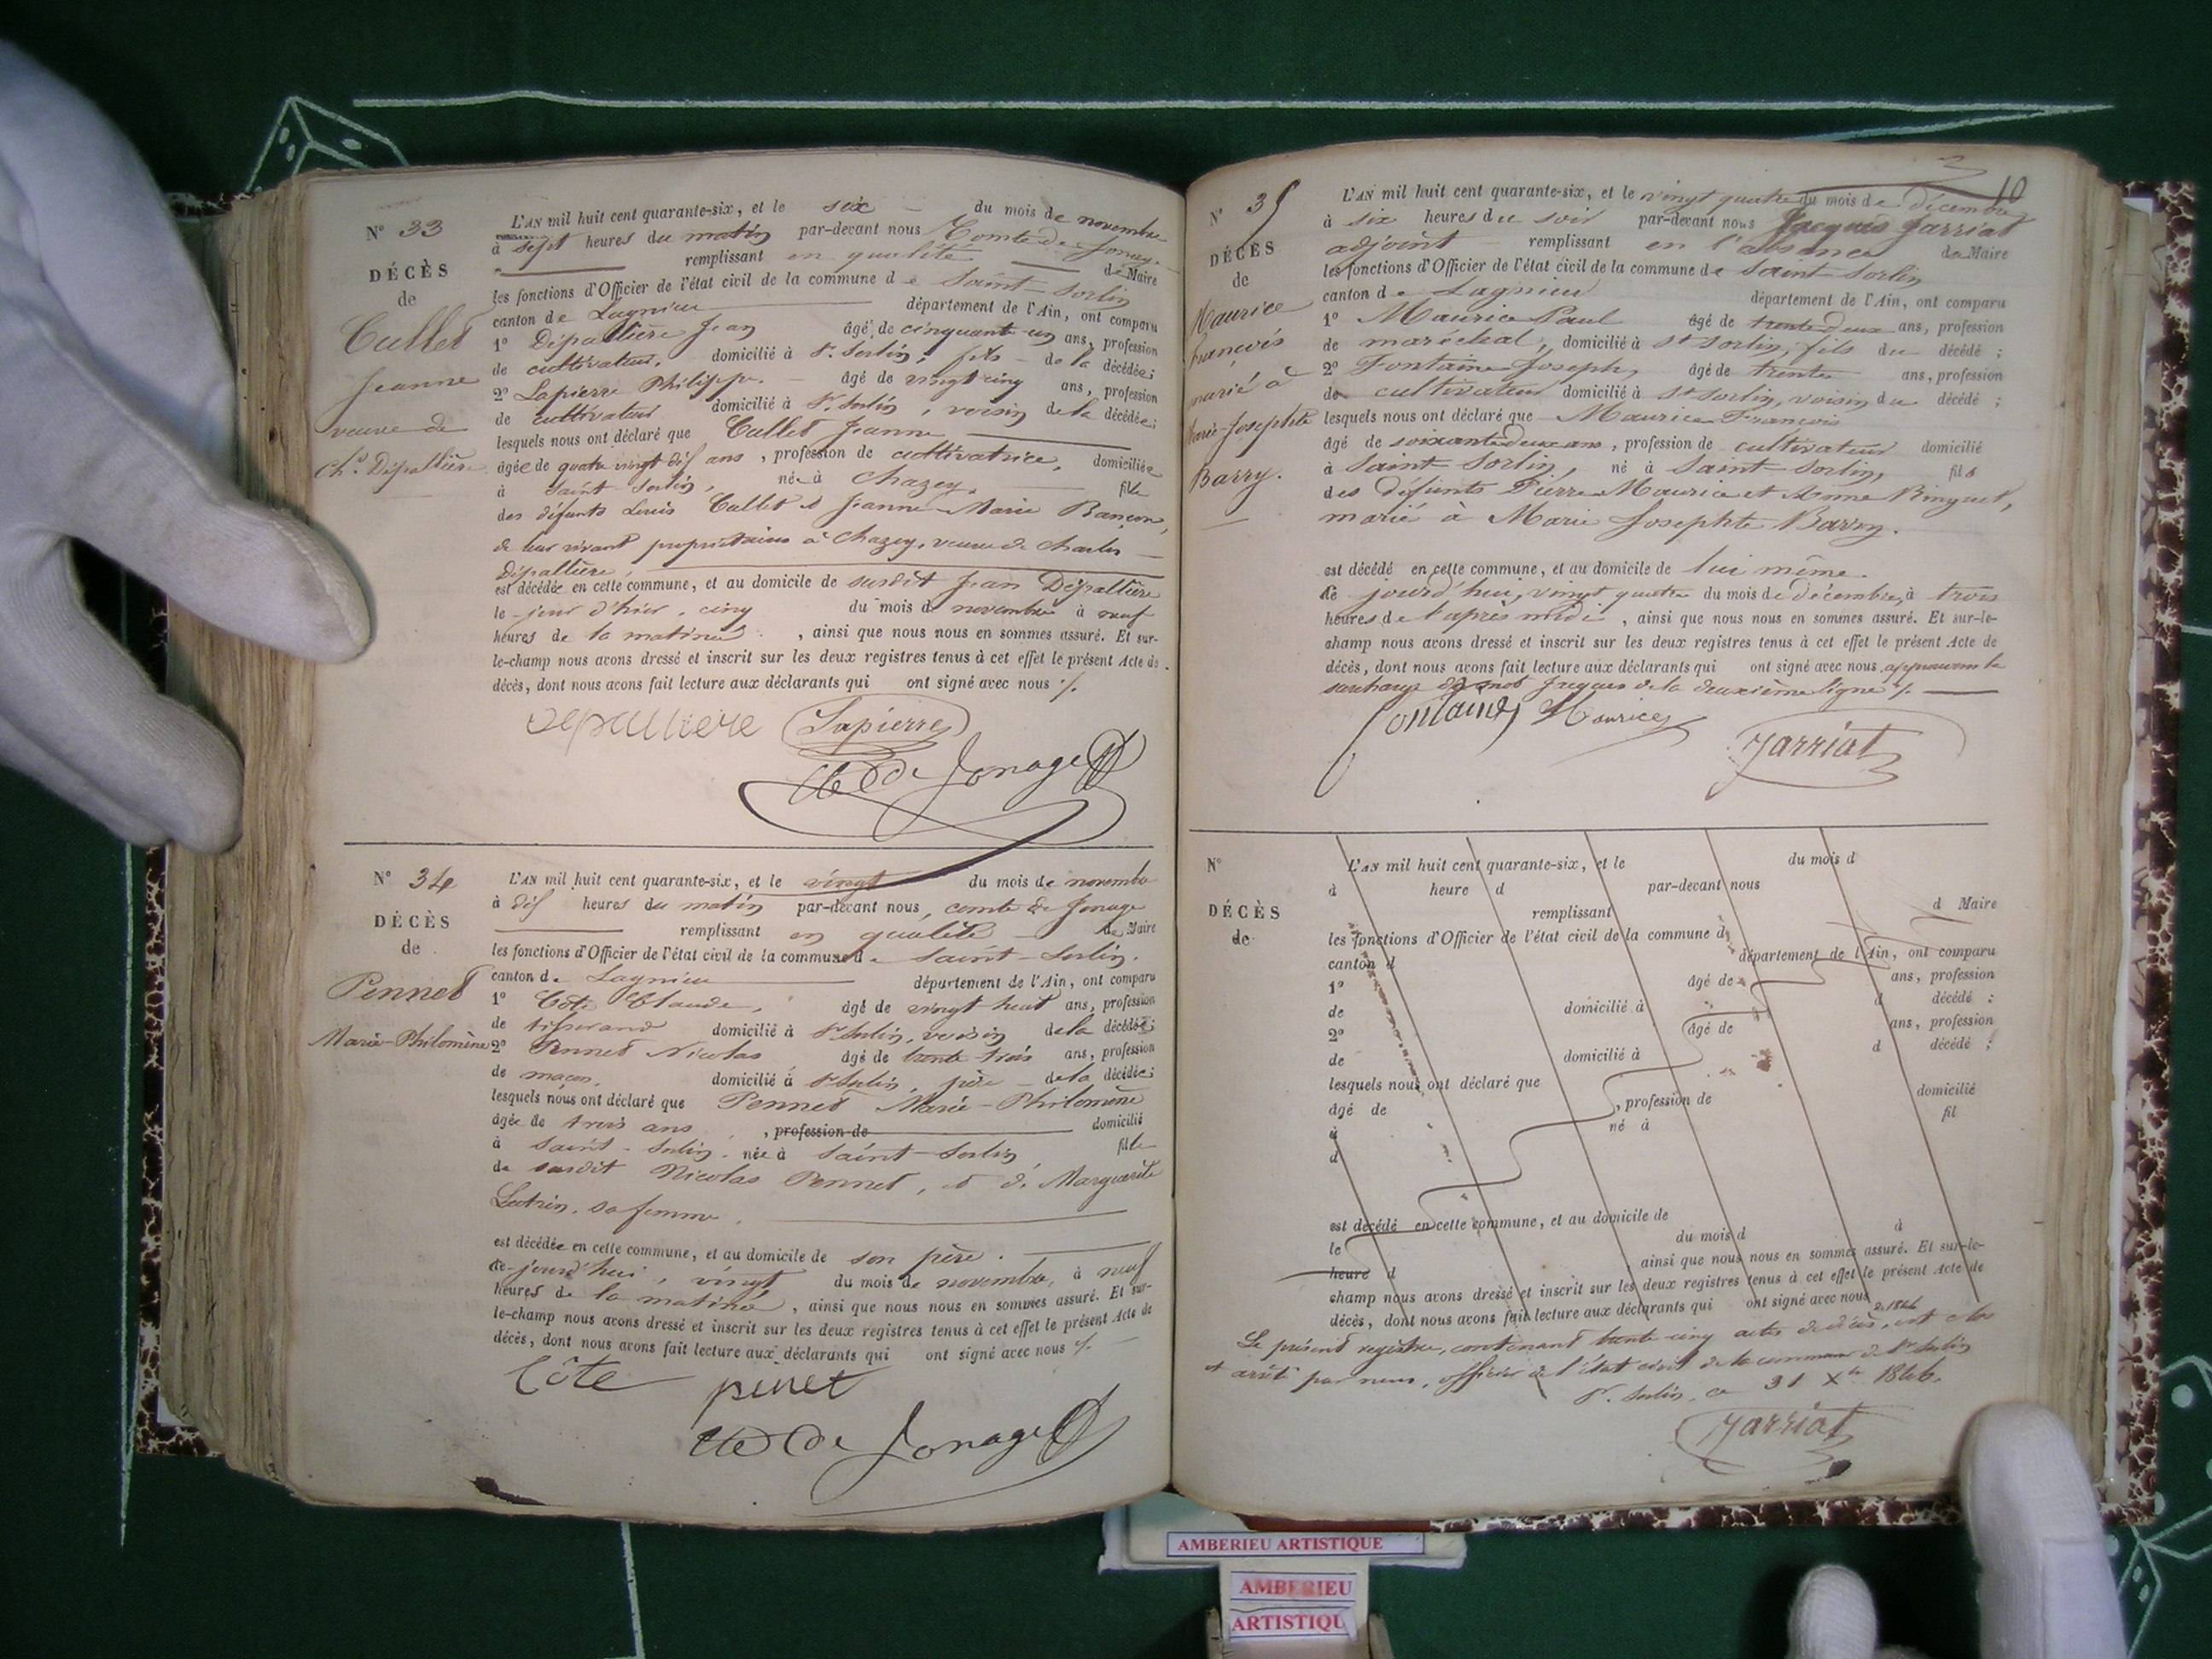 N° 33
DÉCÈS
de
Cullet
Jeanne
veuve de
Ch. Dépallière
L'AN mil huit cent quarante-six, et le six du mois de novembre
à sept heures du matin par-devant nous Comte de Jonage
remplissant en qualité de Maire
les fonctions d'Officier de l'état civil de la commune de Saint-Sorlin
canton de Lagnieu département de l'Ain, ont comparu
1° Dépallière Jean âgé de cinquante un ans, profession
de cultivateur, domicilié à St. Sorlin, fils de la décédée;
2° Lapierre Philippe. âgé de vingt cinq ans, profession
de cultivateur domicilié à St. Sorlin, voisin de la décédée;
lesquels nous ont déclaré que Cullet Jeanne
âgée de quatre vingt dix ans, profession de cultivatrice, domiciliée
à Saint Sorlin, née à Chazey, fille
des défunts Louis Cullet et Jeanne-Marie Bançon,
de leur vivant propriétaires à Chazey, veuve de Charles
Dépallière,
est décédée en cette commune, et au domicile de susdit Jean Dépallière
le jour d'hier, cinq du mois de novembre à neuf
heures de la matinée, ainsi que nous nous en sommes assuré. Et sur-
le-champ nous avons dressé et inscrit sur les deux registres tenus à cet effet le présent Acte de
décès, dont nous avons fait lecture aux déclarants qui ont signé avec nous ./.
depalliere Lapierre
Cte de Jonage
N° 34
DÉCÈS
de
Pennet
Marie-Philomène
L'AN mil huit cent quarante-six, et le vingt du mois de novembre
à dix heures du matin par-devant nous, comte de Jonage
remplissant en qualité de Maire
les fonctions d'Officier de l'état civil de la commune de Saint-Sorlin.
canton de Lagnieu département de l'Ain, ont comparu
1° Côte Claude, âgé de vingt huit ans, profession
de tisserand domicilié à St Sorlin, voisin de la décédée;
2° Pennet Nicolas âgé de trente trois ans, profession
de maçon, domicilié à St Sorlin, père de la décédée;
lesquels nous ont déclaré que Pennet Marie-Philomène
âgée de trois ans, profession de domicilié
à Saint-Sorlin, née à Saint-Sorlin, fille
de susdit Nicolas Pennet, et de Marguerite
Lutrin, sa femme,
est décédée en cette commune, et au domicile de son père.
ce jourd'hui, vingt du mois de novembre, à neuf
heures de la matinée, ainsi que nous nous en sommes assuré. Et sur-
le-champ nous avons dressé et inscrit sur les deux registres tenus à cet effet le présent Acte de
décès, dont nous avons fait lecture aux déclarants qui ont signé avec nous ./.
Côte penet
Cte de Jonage
10
N° 35
DÉCÈS
de
Maurice
François
marié à
Marie-Josephte
Barry.
L'AN mil huit cent quarante-six, et le vingt quatre du mois de décembre
à six heures du soir par-devant nous Jacques Jarriat
adjoint remplissant en l'absence de Maire
les fonctions d'Officier de l'état civil de la commune de Saint-Sorlin
canton de Lagnieu département de l'Ain, ont comparu
1° Maurice Paul âgé de trente deux ans, profession
de maréchal, domicilié à St Sorlin, fils du décédé;
2° Fontaine Joseph, âgé de trente ans, profession
de cultivateur domicilié à St Sorlin, voisin du décédé;
lesquels nous ont déclaré que Maurice François
âgé de soixante deux ans, profession de cultivateur domicilié
à Saint-Sorlin, né à Saint-Sorlin, fils
des défunts Pierre Maurice et Anne Binguet,
marié à Marie Josephte Barry.
est décédé en cette commune, et au domicile de lui même.
ce jourd'hui, vingt quatre du mois de décembre, à trois
heures de l'après midi, ainsi que nous nous en sommes assuré. Et sur-le-
champ nous avons dressé et inscrit sur les deux registres tenus à cet effet le présent Acte de
décès, dont nous avons fait lecture aux déclarants qui ont signé avec nous, approuvons la
surcharge du mot Jacques de la deuxième ligne ./.
Fontaine Maurice
Jarriat
N°
DÉCÈS
de
L'AN mil huit cent quarante-six, et le du mois d
à heure d par-devant nous
remplissant d Maire
les fonctions d'Officier de l'état civil de la commune d
canton d département de l'Ain, ont comparu
1° âgé de ans, profession
de domicilié à d décédé;
2° âgé de ans, profession
de domicilié à d décédé;
lesquels nous ont déclaré que
âgé de , profession de domicilié
à né à fil
d
est décédé en cette commune, et au domicile de
le du mois d à
heure d ainsi que nous nous en sommes assuré. Et sur-le-
champ nous avons dressé et inscrit sur les deux registres tenus à cet effet le présent Acte de
décès, dont nous avons fait lecture aux déclarants qui ont signé avec nous
Le présent registre, contenant trente cinq actes de décès, de 1846 est clos
et arrêté par nous, officier de l'état civil de la commune de St Sorlin
St. Sorlin, ce 31 Xbre 1846.
Jarriat
AMBERIEU ARTISTIQUE
AMBERIEU
ARTISTIQU